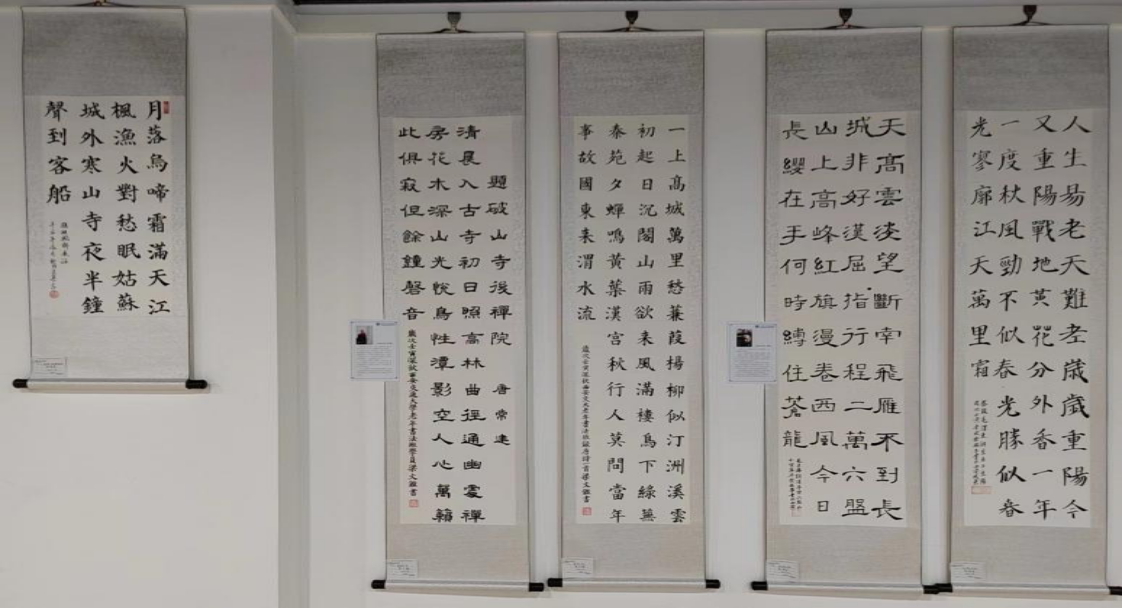 月落烏啼霜滿天江
楓漁火對愁眠姑蘇
城外寒山寺夜半鐘
聲到客船
題破山寺後禪院 唐 常建
清晨入古寺初日照高林曲徑通幽處禪
房花木深山光悅鳥性潭影空人心萬籟
此俱寂但餘鐘磬音
歲次壬寅深秋西安交通大學老年書法班學員梁文鑑書
一上高城萬里愁蒹葭楊柳似汀洲溪雲
初起日沉閣山雨欲来風滿樓鳥下綠蕪
秦苑夕蟬鳴黃葉漢宫秋行人莫問當年
事故國東来渭水流
天高雲淡望斷南飛雁不到長
城非好漢屈指行程二萬六盤
山上高峰紅旗漫卷西風今日
長纓在手何時縛住蒼龍
人生易老天難老歲歲重陽今
又重陽戰地黃花分外香一年
一度秋風勁不似春光勝似春
光寥廓江天萬里霜